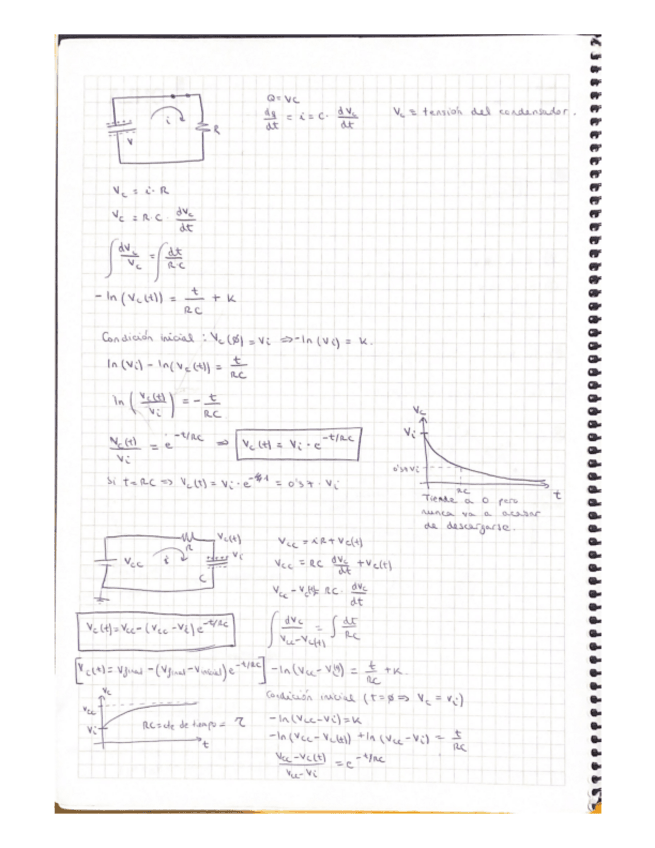 Q = VC
dq/dt = i = C · dVc/dt
Vc = tensión del condensador.
i
V
R
Vc = i · R
Vc = R·C · dVc/dt
∫ dVc/Vc = ∫ dt/R·C
-ln(Vc(t)) = t/RC + K
Condición inicial : Vc(ø) = Vi ⇒ -ln(Vi) = K.
ln(Vi) - ln(Vc(t)) = t/RC
ln(Vc(t)/Vi) = - t/RC
Vc(t)/Vi = e^-t/RC ⇒ Vc(t) = Vi · e^-t/RC
Si t = RC ⇒ Vc(t) = Vi · e = 0'37 · Vi
Vc
Vi
0'37Vi
RC
t
Tiende a 0 pero
nunca va a acabar
de descargarse.
VCC
i
R
Vc(t)
Vi
C
VCC = iR + Vc(t)
VCC = RC dVc/dt + Vc(t)
VCC - Vc(t) = RC · dVc/dt
∫ dVc/VCC-Vc(t) = ∫ dt/RC
Vc(t) = VCC - (VCC - Vi) e^-t/RC
[Vc(t) = Vfinal - (Vfinal - Vinicial) e^-t/RC]
-ln(VCC - Vc(t)) = t/RC + K.
Condición inicial (t = ø ⇒ Vc = Vi)
-ln(VCC - Vi) = K
-ln(VCC - Vc(t)) + ln(VCC - Vi) = t/RC
VCC - Vc(t)/VCC - Vi = e^-t/RC
Vc
VCC
Vi
RC = cte de tiempo = τ
t